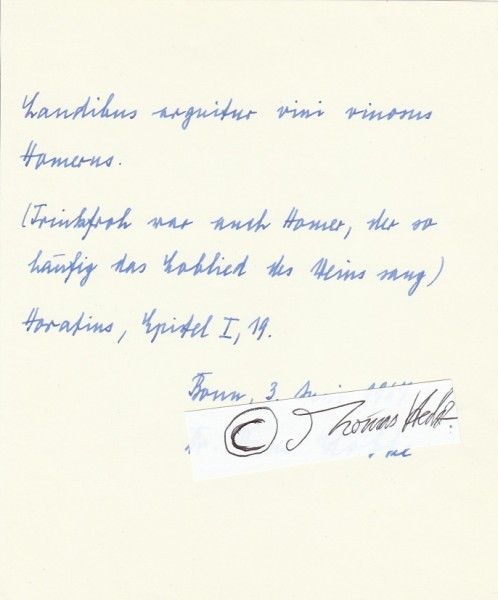 Laudibus arguitur vini vinosus
Homerus.
(Trinkfroh war auch Homer, der so
häufig das Loblied des Weins sang)
Horatius, Epistel I, 19.
Bonn, 3.
© Thomas